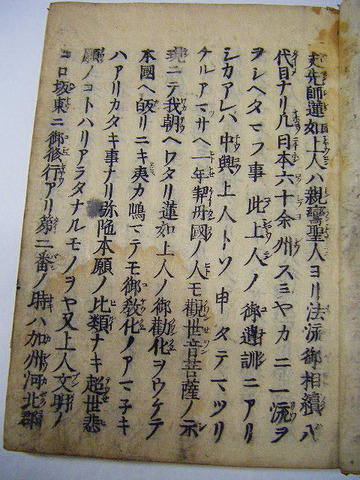 夫先師蓮如上人ハ親鸞聖人ヨリ法流御相續八
代目ナリ凡日本六十余州スミヤカニ一流ヲ
ヲシヘタマフ事此上人ノ御遺訓ニアリ
シカアレハ中興上人トソ申タテマツリ
ケルアマサヘ一年契丹國ノ人モ觀世音菩薩ノ示
現ニテ我朝ヘワタリ蓮如上人ノ御勸化ヲウケテ
本國ヘ皈リニキ夷カ嶋マテモ御教化ノアマ子キ
ハアリカタキ事ナリ弥陁本願ノ比類ナキ超世悲
願ノコトハリアラタナルモノヲヤ又上人文明ノ
コロ坂東ニ御修行アリ第二番ノ時ハ加州河北郡